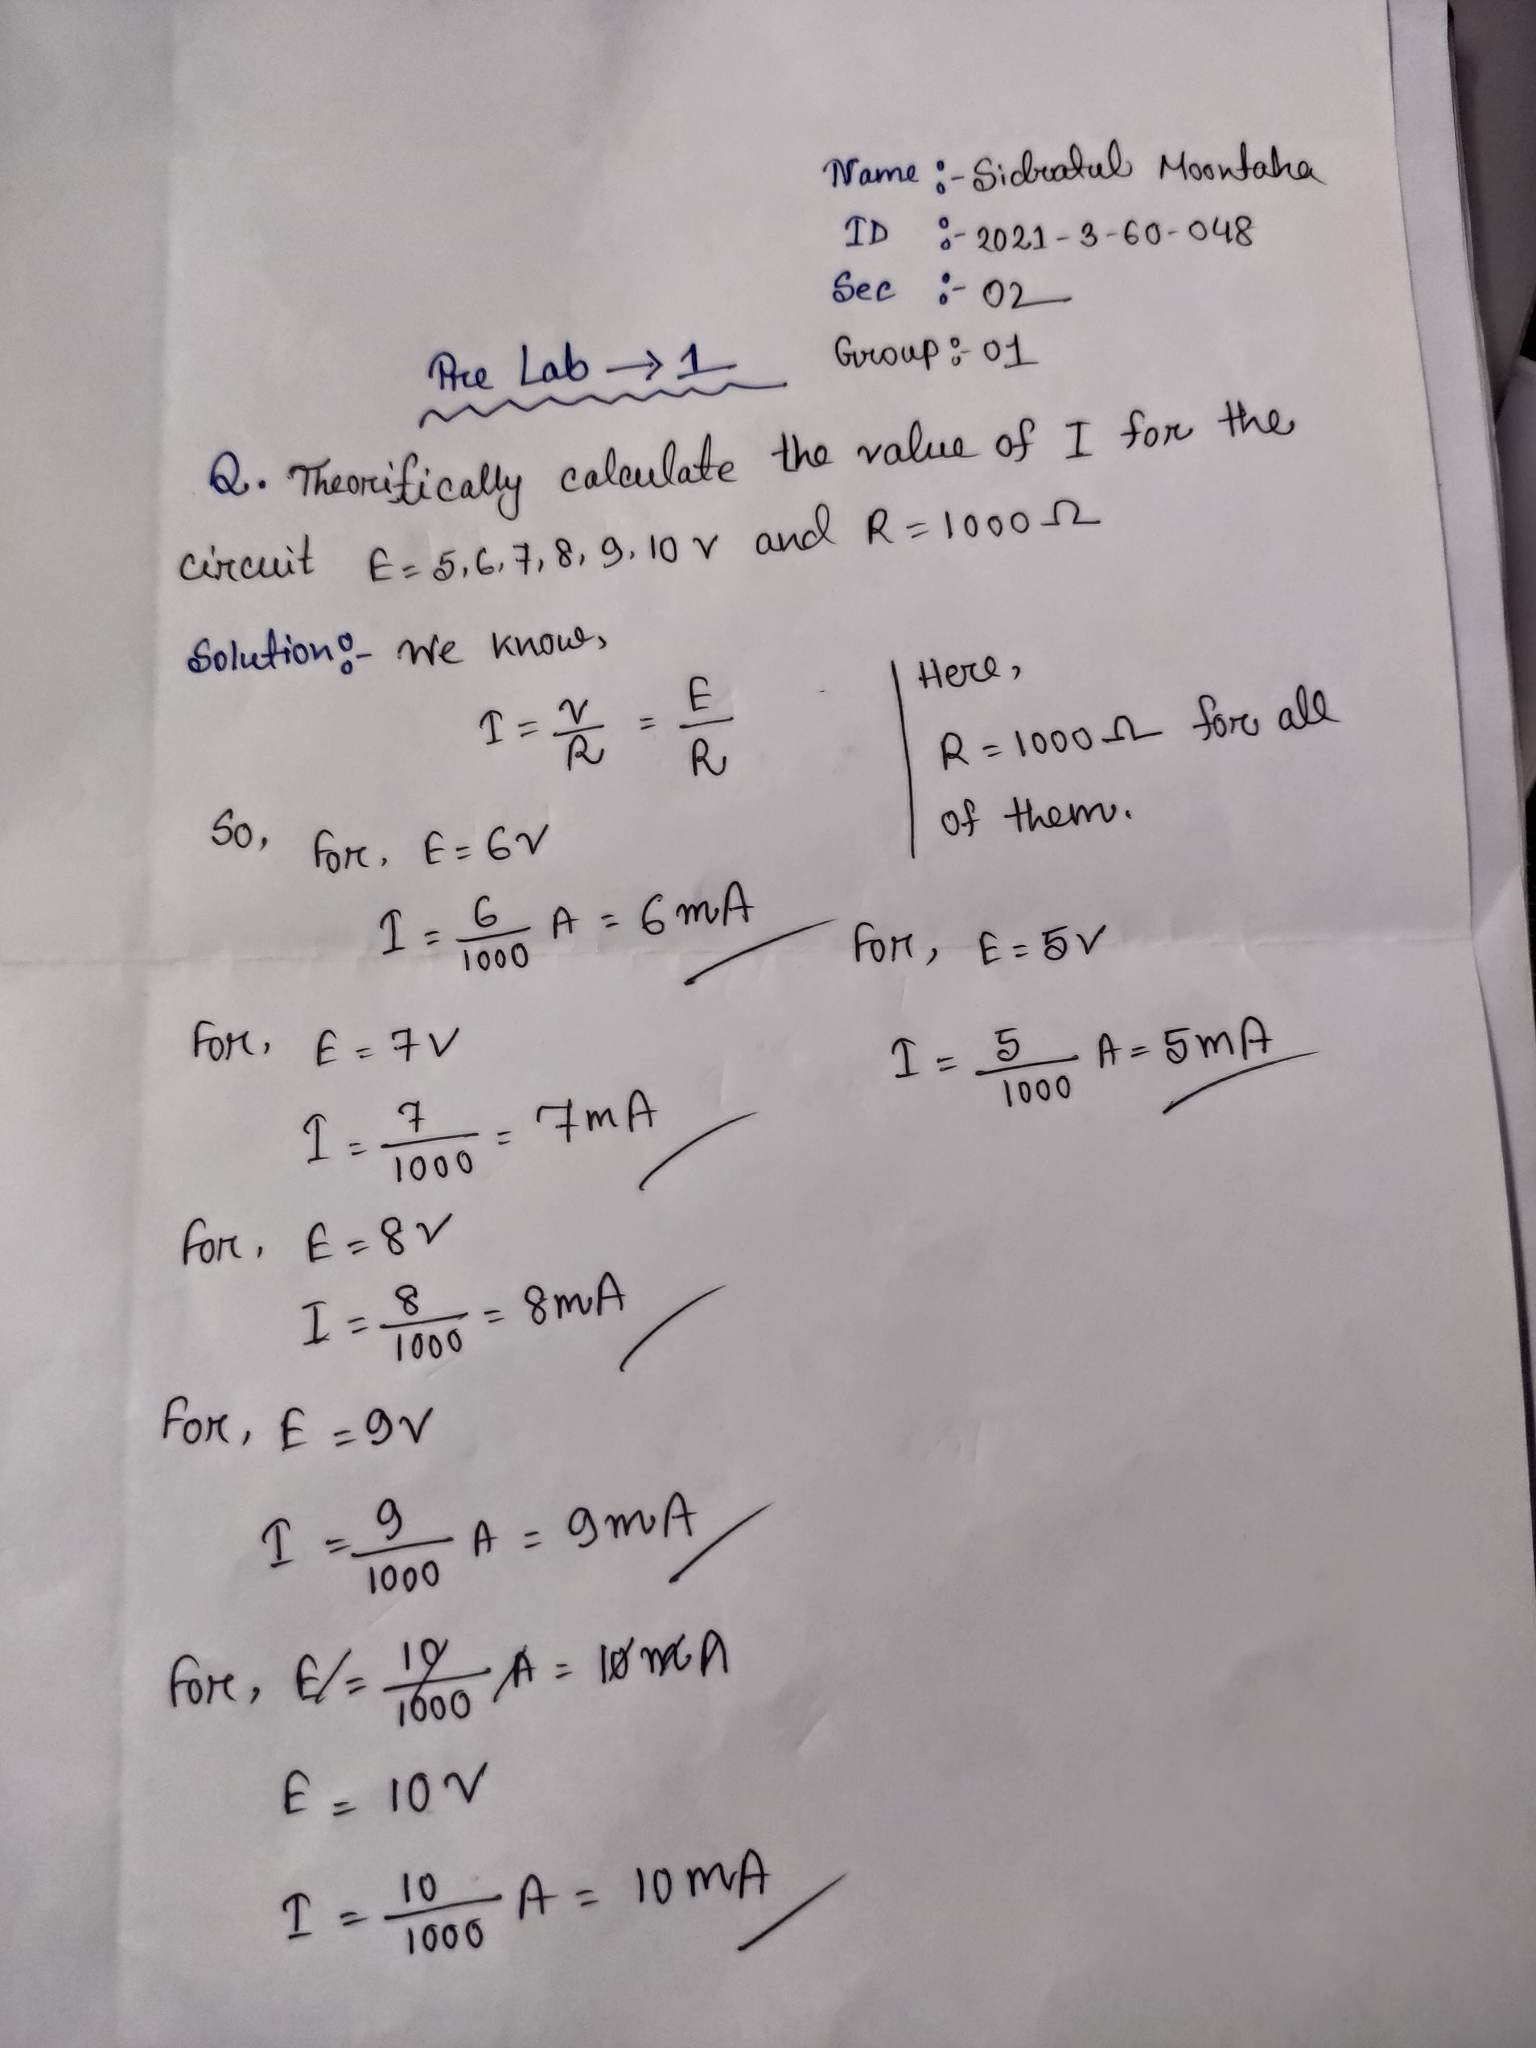 Name :- Sidratul Moontaha
ID :- 2021-3-60-048
Sec :- 02
Group :- 01
Pre Lab → 1
Q. Theoritically calculate the value of I for the
circuit E = 5, 6, 7, 8, 9, 10 v and R = 1000 Ω
Solution :- We know,
I = V/R = E/R
Here,
R = 1000 Ω for all
of them.
So, for, E = 6V
I = 6/1000 A = 6 mA
For, E = 5V
I = 5/1000 A = 5 mA
For, E = 7V
I = 7/1000 = 7 mA
For, E = 8V
I = 8/1000 = 8 mA
For, E = 9V
I = 9/1000 A = 9 mA
For, E = 10/1000 A = 10 mA
E = 10V
I = 10/1000 A = 10 mA